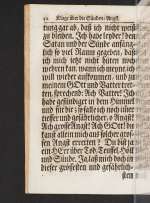 52 Klage über die Sünden-Angst
tung gar ab, daß ich nicht weiß
zu bleiben. Ich habe leyder dem
Satan und der Sünde anfäng-
lich so viel Raum gegeben, daß
mich ich jetzt nicht
wehren kan, wann ich meynt ich
will wieder aufkommen, und zu
meinem GOtt und Vatter tret-
ten, sprechend: Ach Vatter! Ich
habe gesündiget in dem Himmel
und für dir: so falle ich noch
und gefährlicher. O Angst!
Ach grosse Angst! Ach GOtt du
kanst allein mich aus solcher gros-
sen Angst erretten! Du bist ja
ein HErr über Tod, Teufel, Höll
und Sünde. Ja, laß mich doch in
dieser grösesten und gefährlich-
sten